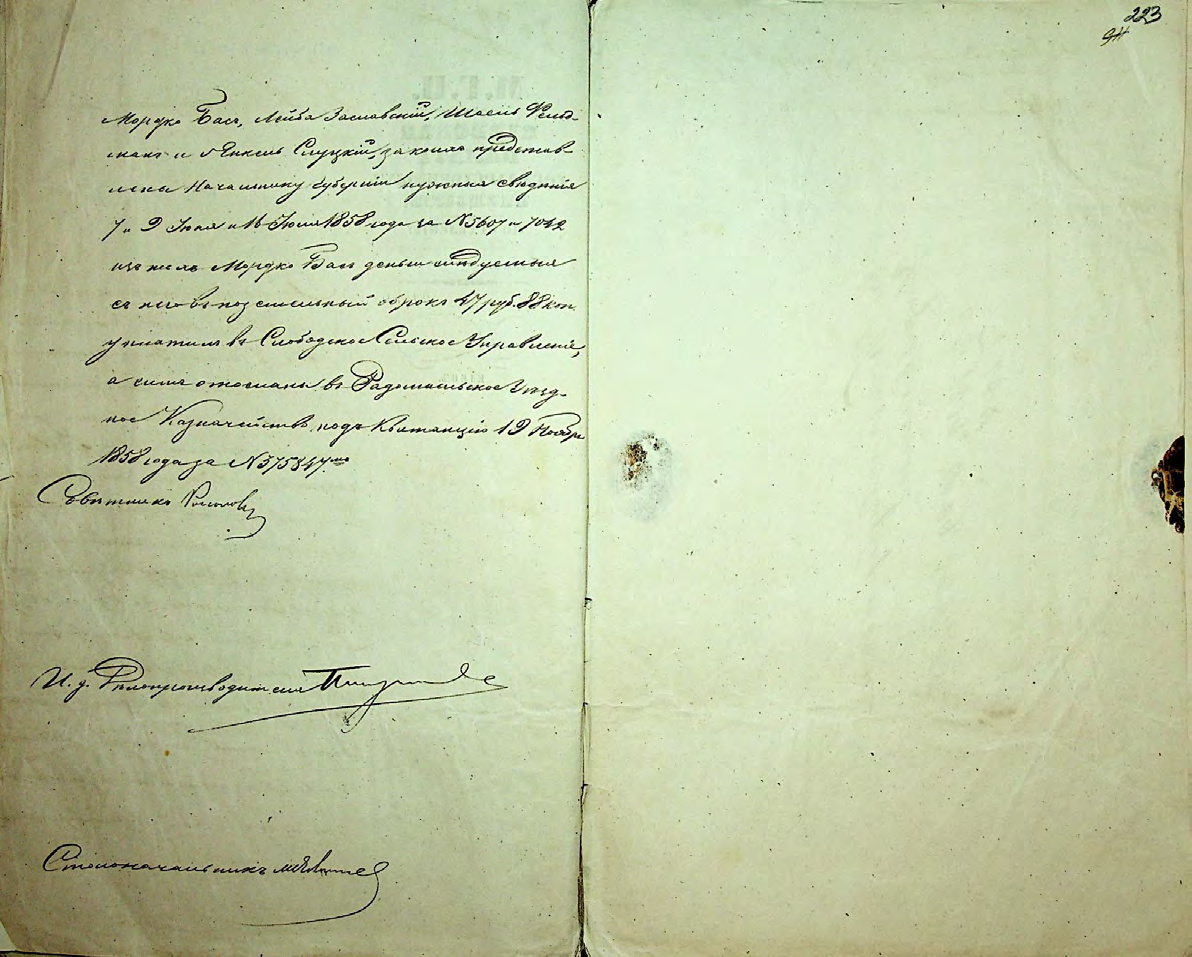 223
Мордко Басъ, Лейба Заславскій, Шаель Фельд-
манъ и Янкель Слуцкій, за коихъ представ-
лены Начальнику Губерніи нужныя свѣденія
7 и 9 Іюля и 16 Іюля 1858 года за N 5607 и 7042
изъ нихъ Мордко Басъ деньги слѣдуемыя
съ него въ поземельный оброкъ 47 руб. 88 коп.
уплатилъ въ Слободское Сельское Управленіе,
а симъ отосланы въ Радомысльское Уѣзд-
ное Казначейство подъ Квитанцію 19 Ноября
1858 года за N 375347.мъ
Совѣтникъ
И. д. Дѣлопроизводителя
Столоначальникъ